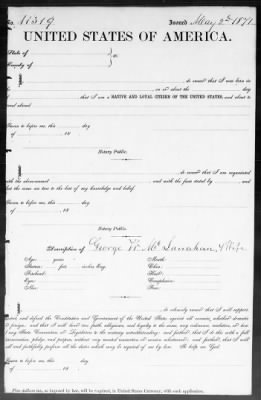 No. Issued May 2d 1871
UNITED STATES OF AMERICA.
State of
County of
ss:
do swear that I was born in
on or about the day
of that I am a NATIVE AND LOYAL CITIZEN OF THE UNITED STATES, and about to
travel abroad.
Sworn to before me, this day
of 18
Notary Public.
do swear that I am acquainted
with the above-named and with the facts stated by
and that the same are true to the best of my knowledge and belief.
Sworn to before me, this day
of 18
Notary Public.
Description of George W. McLanahan, & Wife
Age: years Mouth:
Stature: feet inches Eng. Chin:
Forehead: Hair:
Eyes: Complexion:
Nose: Face:
do solemnly swear that I will support,
protect, and defend the Constitution and Government of the United States against all enemies, whether domestic
or foreign; and that I will bear true faith, allegiance, and loyalty to the same, any ordinance, resolution, or law
of any State, Convention, or Legislature to the contrary notwithstanding; and further, that I do this with a full
determination, pledge, and purpose, without any mental reservation or evasion whatsoever; and further, that I will
well and faithfully perform all the duties which may be required of me by law. So help me God.
Sworn to before me, this day
of 18
Five dollars tax, as imposed by law, will be required, in United States Currency, with each application.